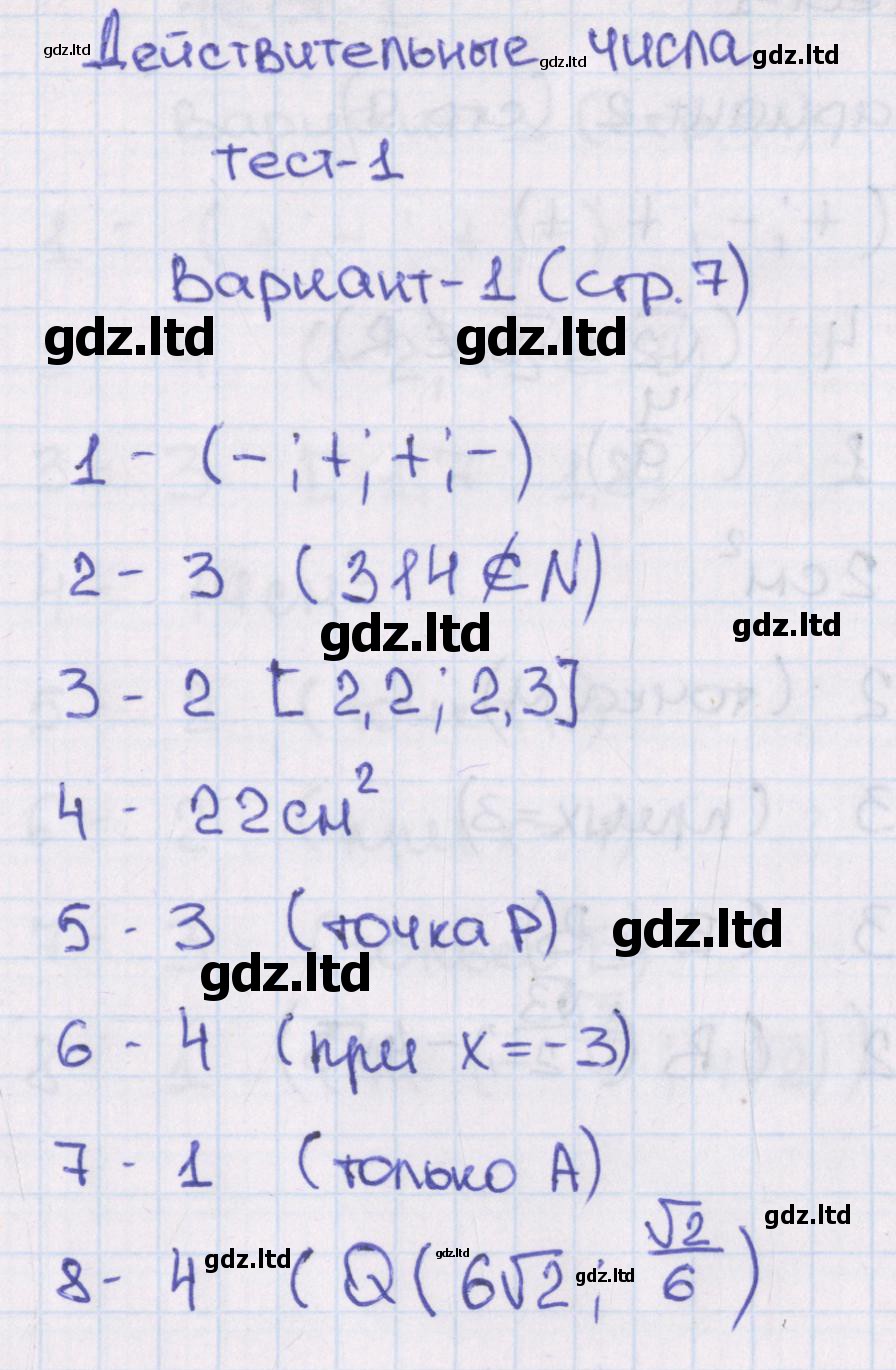 gdz.ltd Действительные gdz.ltd числа gdz.ltd
тест-1
Вариант-1 (стр.7)
gdz.ltd gdz.ltd
1 - (-;+;+;-)
2 - 3 (314 ∉ N)
gdz.ltd gdz.ltd
3 - 2 [2,2; 2,3]
4 - 22см²
5 - 3 (точка P) gdz.ltd
gdz.ltd
6 - 4 (при x=-3)
7 - 1 (только A)
gdz.ltd
8 - 4 gdz.ltd (Q( gdz.ltd 6√2 gdz.ltd ; √2/6)